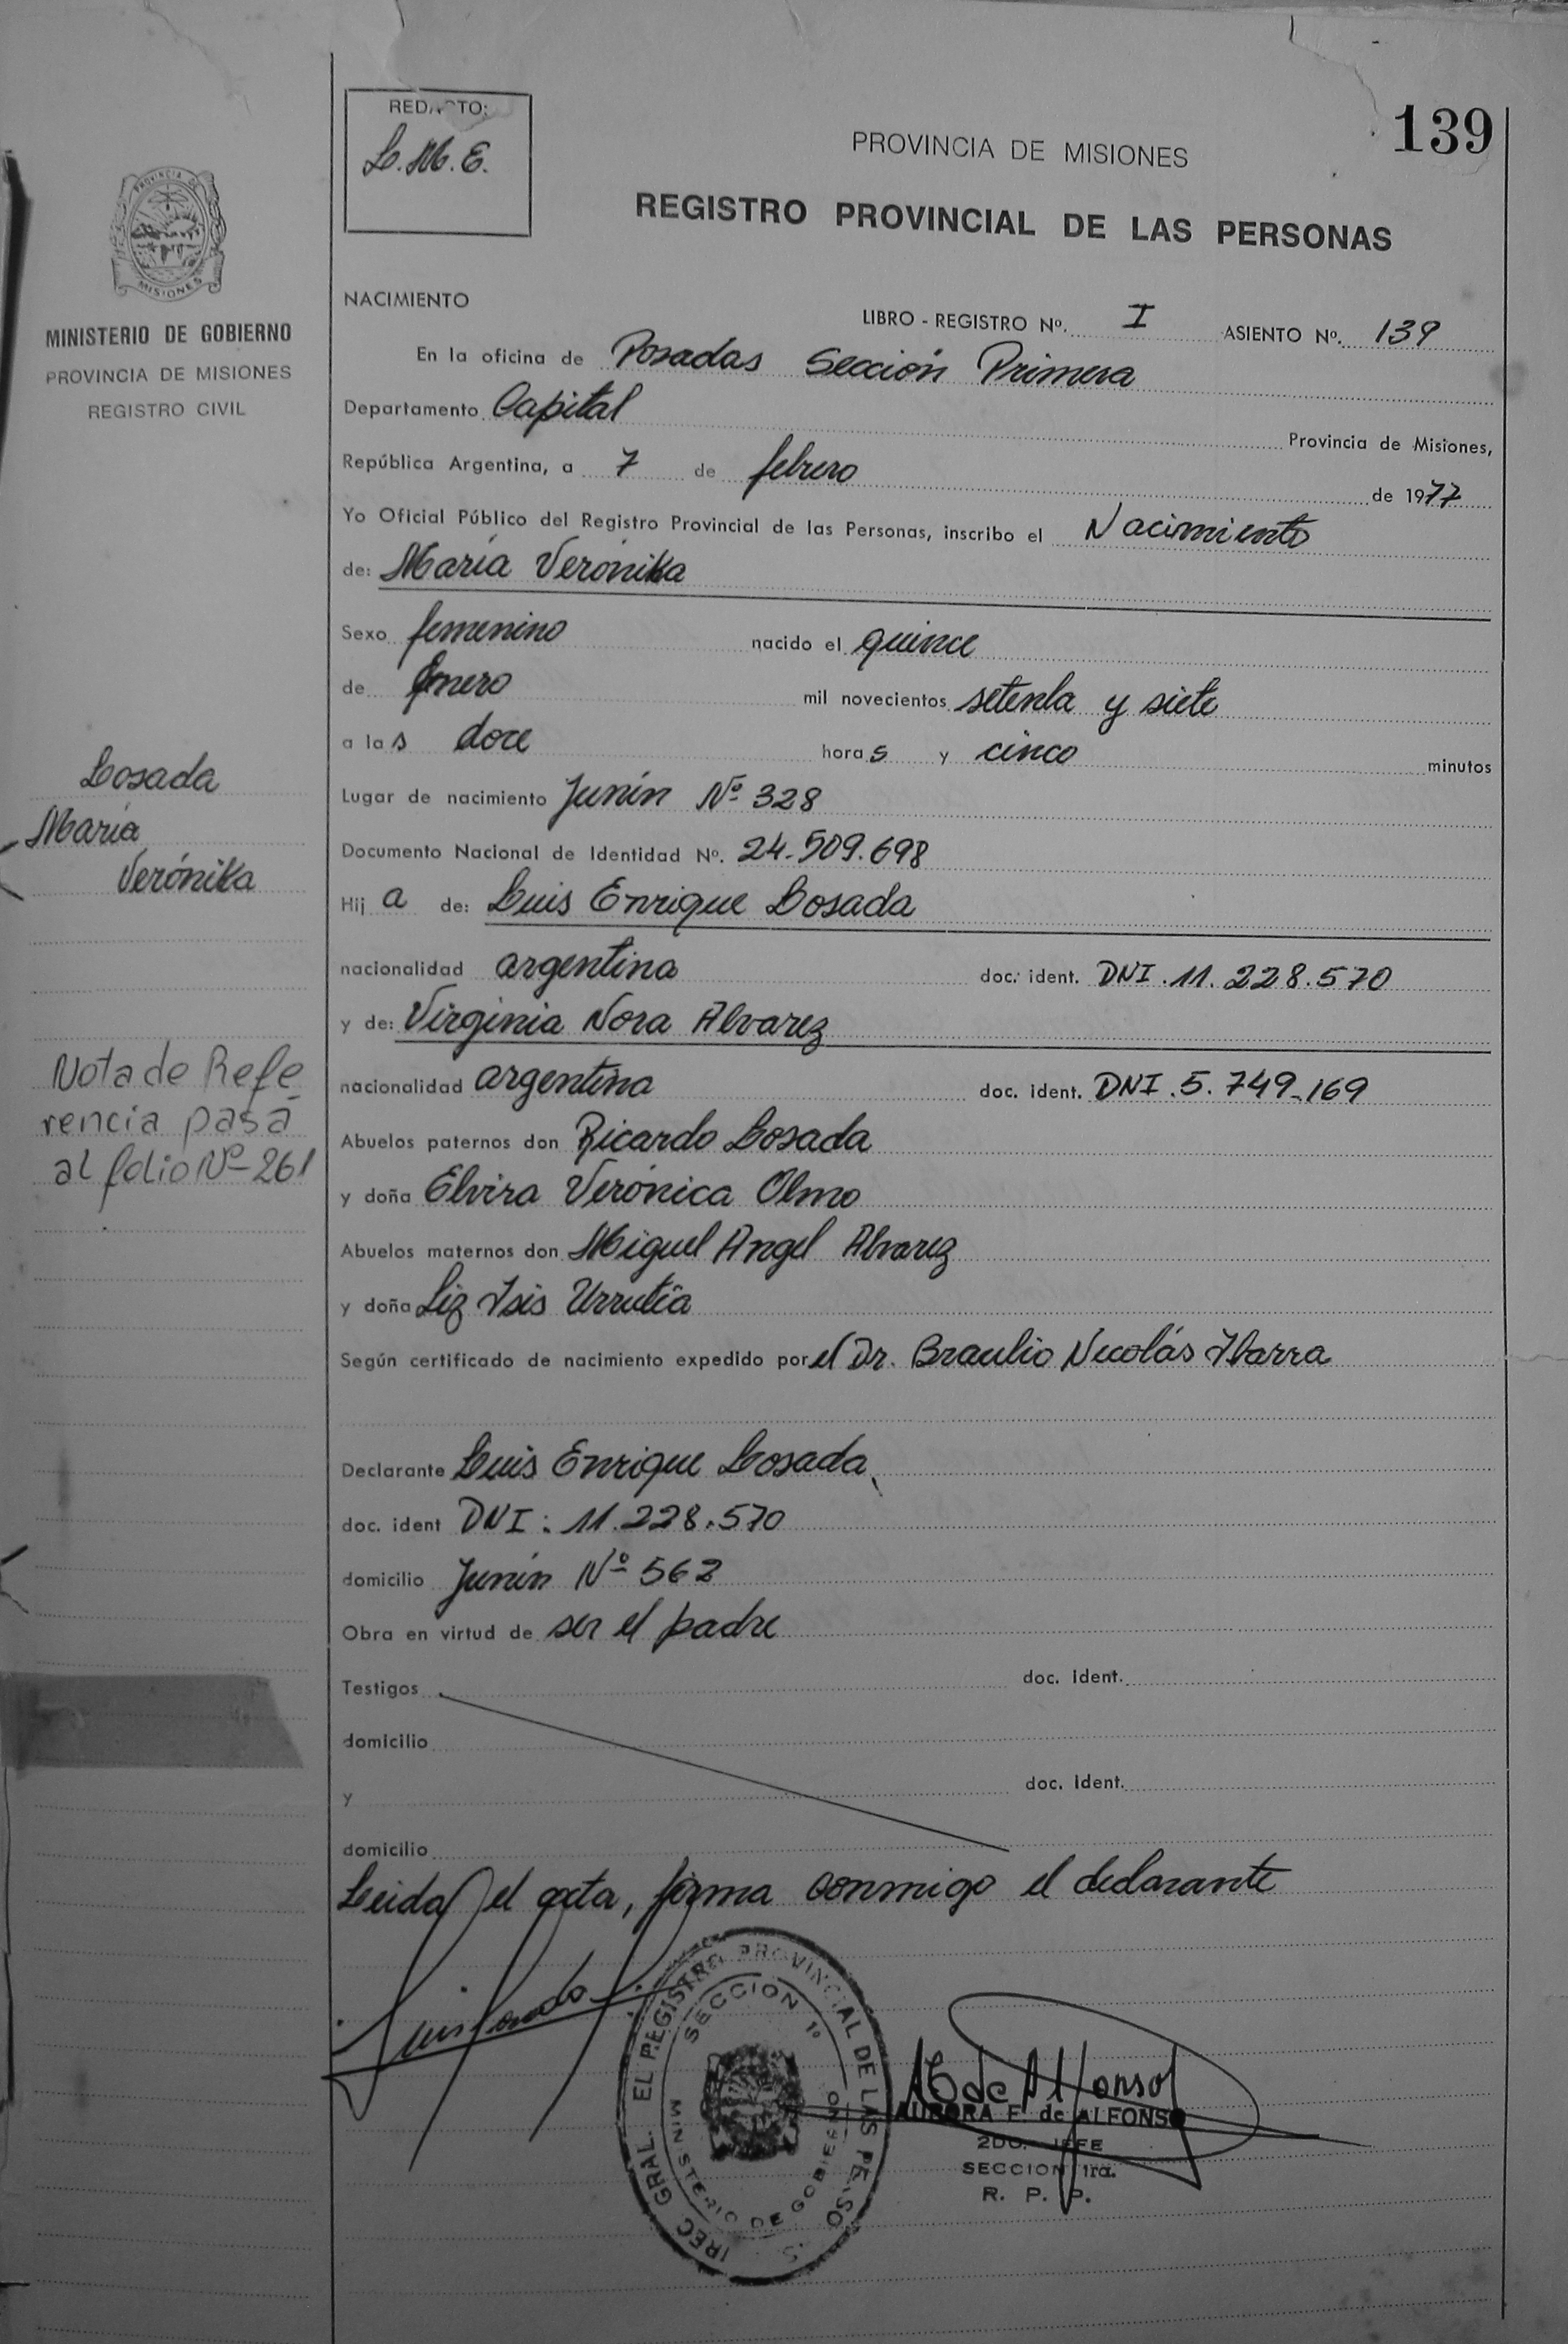 139
REDACTO:
L. M. E.
PROVINCIA DE MISIONES
REGISTRO PROVINCIAL DE LAS PERSONAS
PROVINCIA DE
MISIONES
MINISTERIO DE GOBIERNO
PROVINCIA DE MISIONES
REGISTRO CIVIL
NACIMIENTO
LIBRO - REGISTRO Nº. I ASIENTO Nº. 139
En la oficina de Posadas Sección Primera
Departamento Capital Provincia de Misiones,
República Argentina, a 7 de febrero de 1977
Yo Oficial Público del Registro Provincial de las Personas, inscribo el Nacimiento
de: María Verónika
Sexo femenino nacido el quince
de Enero mil novecientos setenta y siete
a las doce horas y cinco minutos
Lugar de nacimiento Junín Nº 328
Documento Nacional de Identidad Nº. 24.509.698
Hija de: Luis Enrique Losada
nacionalidad argentina doc. ident. DNI. 11.228.570
y de: Virginia Nora Alvarez
nacionalidad argentina doc. ident. DNI. 5.749.169
Abuelos paternos don Ricardo Losada
y doña Elvira Verónica Olmo
Abuelos maternos don Miguel Angel Alvarez
y doña Liz Isis Urrutia
Según certificado de nacimiento expedido por el Dr. Braulio Nicolás Ibarra
Declarante Luis Enrique Losada
doc. ident DNI: 11.228.570
domicilio Junín Nº 562
Obra en virtud de ser el padre
Testigos doc. ident.
domicilio
y doc. ident.
domicilio
Leida el acta, firma conmigo el declarante
Losada
María
Verónika
Nota de Refe
rencia pasa
al folio Nº 261
Luis Losada
EL REGISTRO PROVINCIAL DE LAS PERSO S
IREC GRAL.
SECCION 1º
MINISTERIO DE GOBIERNO
de Alfonso
AURORA F. de ALFONSO
2DO. JEFE
SECCION 1ra.
R. P. P.